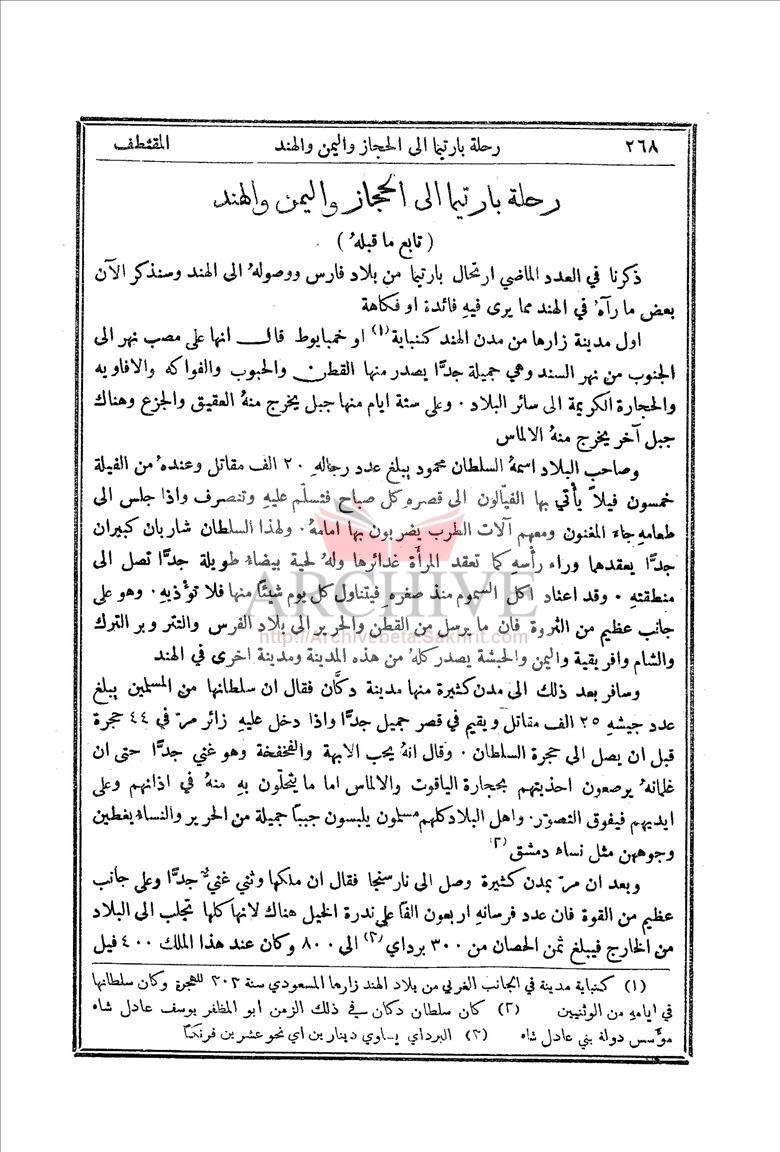 ٢٦٨ رحلة بارتيما الى الحجاز واليمن والهند المقتطف
رحلة بارتيما الى الحجاز واليمن والهند
( تابع ما قبلهُ )
ذكرنا في العدد الماضي ارتحال بارتيما من بلاد فارس ووصولهُ الى الهند وسنذكر الآن
بعض ما رآهُ في الهند مما يرى فيهِ فائدة او فكاهة
اول مدينة زارها من مدن الهند كنباية(١) او خمبايوط قال انها على مصب نهر الى
الجنوب من نهر السند وهي جميلة جدًّا يصدر منها القطن والحبوب والفواكه والافاويه
والحجارة الكريمة الى سائر البلاد ٠ وعلى ستة ايام منها جبل يخرج منهُ العقيق والجزع وهناك
جبل آخر يخرج منهُ الالماس
وصاحب البلاد اسمهُ السلطان محمود يبلغ عدد رجالهِ ٢٠ الف مقاتل وعندهُ من الفيلة
خمسون فيلاً يأتي بها الفيّالون الى قصرهِ كل صباح فتسلّم عليهِ وتنصرف واذا جلس الى
طعامهِ جاءَ المغنون ومعهم آلات الطرب يضربون بها امامهُ ٠ ولهذا السلطان شاربان كبيران
جدًّا يعقدهما وراء رأْسهِ كما تعقد المرأَة غدائرها ولهُ لحية بيضاء طويلة جدًّا تصل الى
منطقتهِ ٠ وقد اعتاد اكل السموم منذ صغرهِ فيتناول كل يوم شيئًا منها فلا تؤذيهِ ٠ وهو على
جانب عظيم من الثروة فان ما يرسل من القطن والحرير الى بلاد الفرس والتتر وبر الترك
والشام وافريقية واليمن والحبشة يصدر كلهُ من هذه المدينة ومدينة اخرى في الهند
وسافر بعد ذلك الى مدن كثيرة منها مدينة دكَّان فقال ان سلطانها من المسلمين يبلغ
عدد جيشهِ ٢٥ الف مقاتل ويقيم في قصر جميل جدًّا واذا دخل عليهِ زائر مرّ في ٤٤ حجرة
قبل ان يصل الى حجرة السلطان ٠ وقال انهُ يحب الابهة والفخفخة وهو غني جدًّا حتى ان
غلمانهُ يرصعون احذيتهم بحجارة الياقوت والالماس اما ما يتحلّون بهِ منهُ في اذانهم وعلى
ايديهم فيفوق التصوّر. واهل البلاد كلهم مسلمون يلبسون جببًا جميلة من الحرير والنساءُ يغطين
وجوههن مثل نساء دمشق(٢)
وبعد ان مرّ بمدن كثيرة وصل الى نارسنجا فقال ان ملكها وثني غنيٌّ جدًّا وعلى جانب
عظيم من القوة فان عدد فرسانهِ اربعون الفًا على ندرة الخيل هناك لانها كلها تجلب الى البلاد
من الخارج فيبلغ ثمن الحصان من ٣٠٠ برداي(٣) الى ٨٠٠ وكان عند هذا الملك ٤٠٠ فيل
(١) كنباية مدينة في الجانب الغربي من بلاد الهند زارها المسعودي سنة ٣٠٣ للهجرة وكان سلطانها
في ايامهِ من الوثنيين (٢) كان سلطان دكان في ذلك الزمن ابو المظفر يوسف عادل شاه
مؤَسس دولة بني عادل شاه (٣) البرداي يساوي دينارين اي نحو عشرين فرنكًا
ARCHIVE
http://Archivebeta.Sakhrit.com